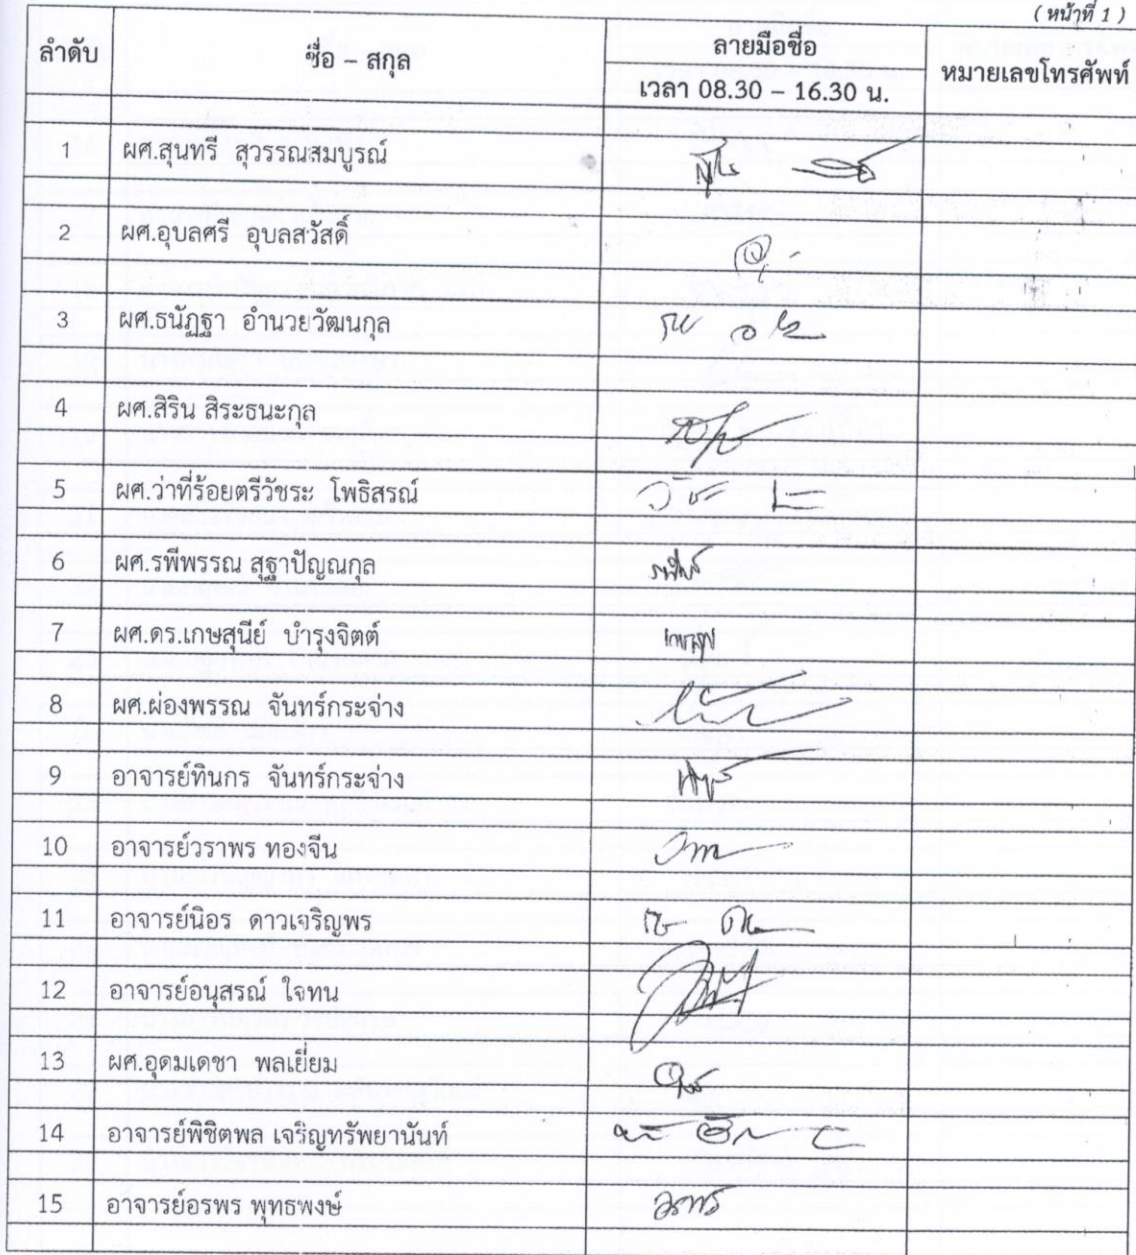 ( หน้าที่ 1 )
ลำดับ ชื่อ – สกุล ลายมือชื่อ หมายเลขโทรศัพท์
เวลา 08.30 – 16.30 น.
1 ผศ.สุนทรี สุวรรณสมบูรณ์
2 ผศ.อุบลศรี อุบลสวัสดิ์
3 ผศ.ธนัฏฐา อำนวยวัฒนกุล
4 ผศ.สิริน สิระธนะกุล
5 ผศ.ว่าที่ร้อยตรีวัชระ โพธิสรณ์
6 ผศ.รพีพรรณ สุฐาปัญณกุล
7 ผศ.ดร.เกษสุนีย์ บำรุงจิตต์
8 ผศ.ผ่องพรรณ จันทร์กระจ่าง
9 อาจารย์ทินกร จันทร์กระจ่าง
10 อาจารย์วราพร ทองจีน
11 อาจารย์นิอร ดาวเจริญพร
12 อาจารย์อนุสรณ์ ใจทน
13 ผศ.อุดมเดชา พลเยี่ยม
14 อาจารย์พิชิตพล เจริญทรัพยานันท์
15 อาจารย์อรพร พุทธพงษ์ อรพร